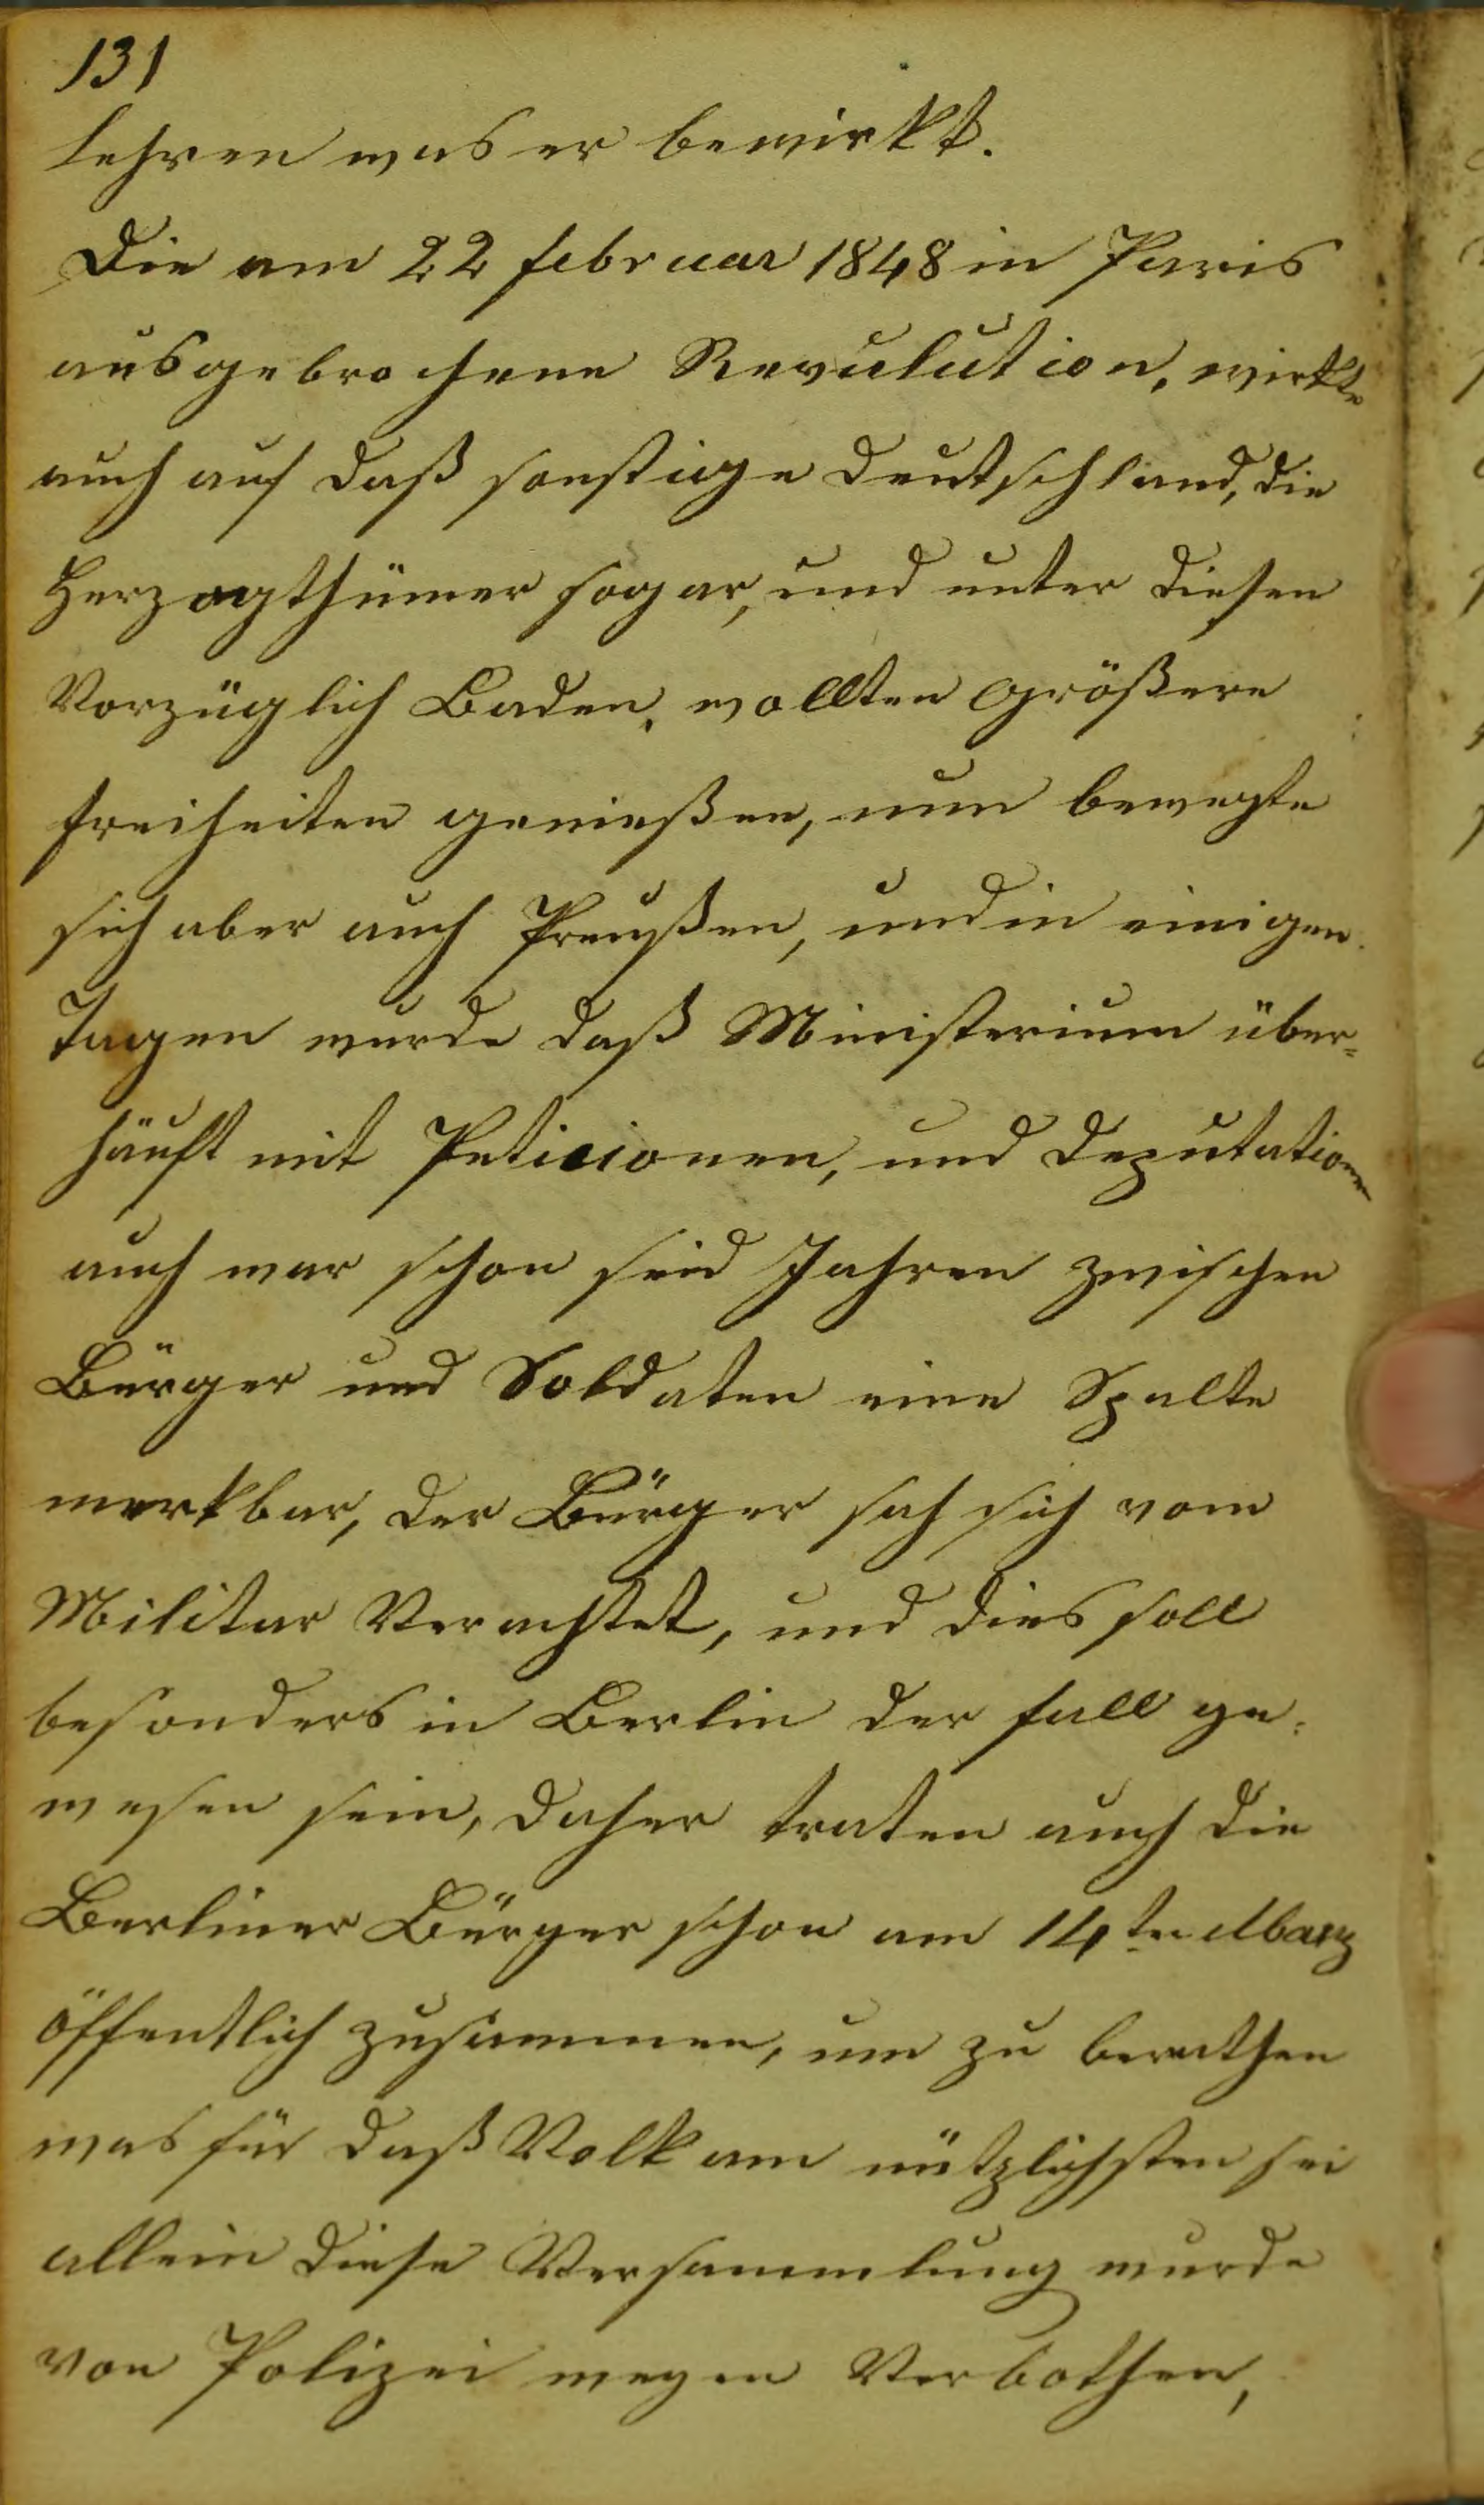 131
lehren was er bewirkt.
Die am 22 februar 1848 in Paris
ausgebrochene Revulution, wirkte
auch auf daß sonstige Deutschland, die
Herzogthümer sogar, und unter diesen
Vorzüglich Baden, wollten größere
freiheiten genießen, nun bewegte
sich aber auch Preußen, und in einigen
Tagen wurde daß Ministerium über-
häuft mit Peticionen, und Deputationen
auch war schon seid Jahren zwischen
Bürger und Soldaten eine Spalte
merkbar, der Bürger sah sich vom
Militar Verachtet, und dies soll
besonders in Berlin der fall ge-
wesen sein, daher traten auch die
Berliner Bürger schon am 14ten Marz
öffentlich zusammen, um zu berathen
was für daß Volk am nützlichsten sei
allein diese Versammlung wurde
von Polizei wegen Verbothen,